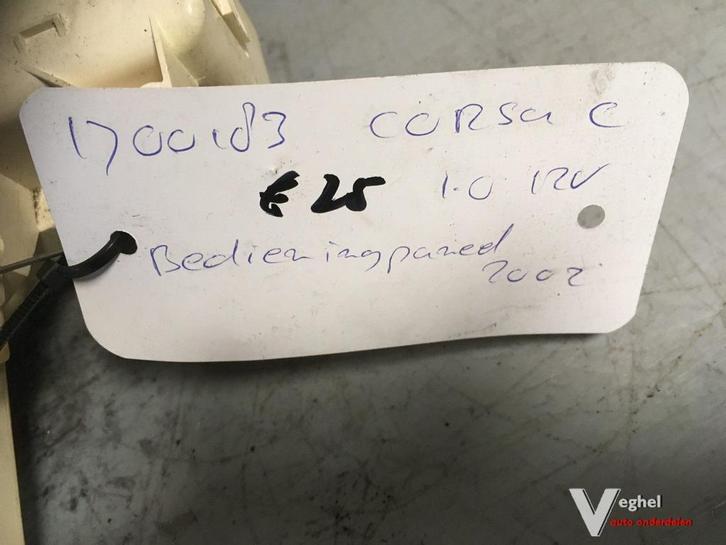 1700183 CORSA C
€25 1.0 12V
Bedieningpaneel
2002
Veghel
auto onderdelen